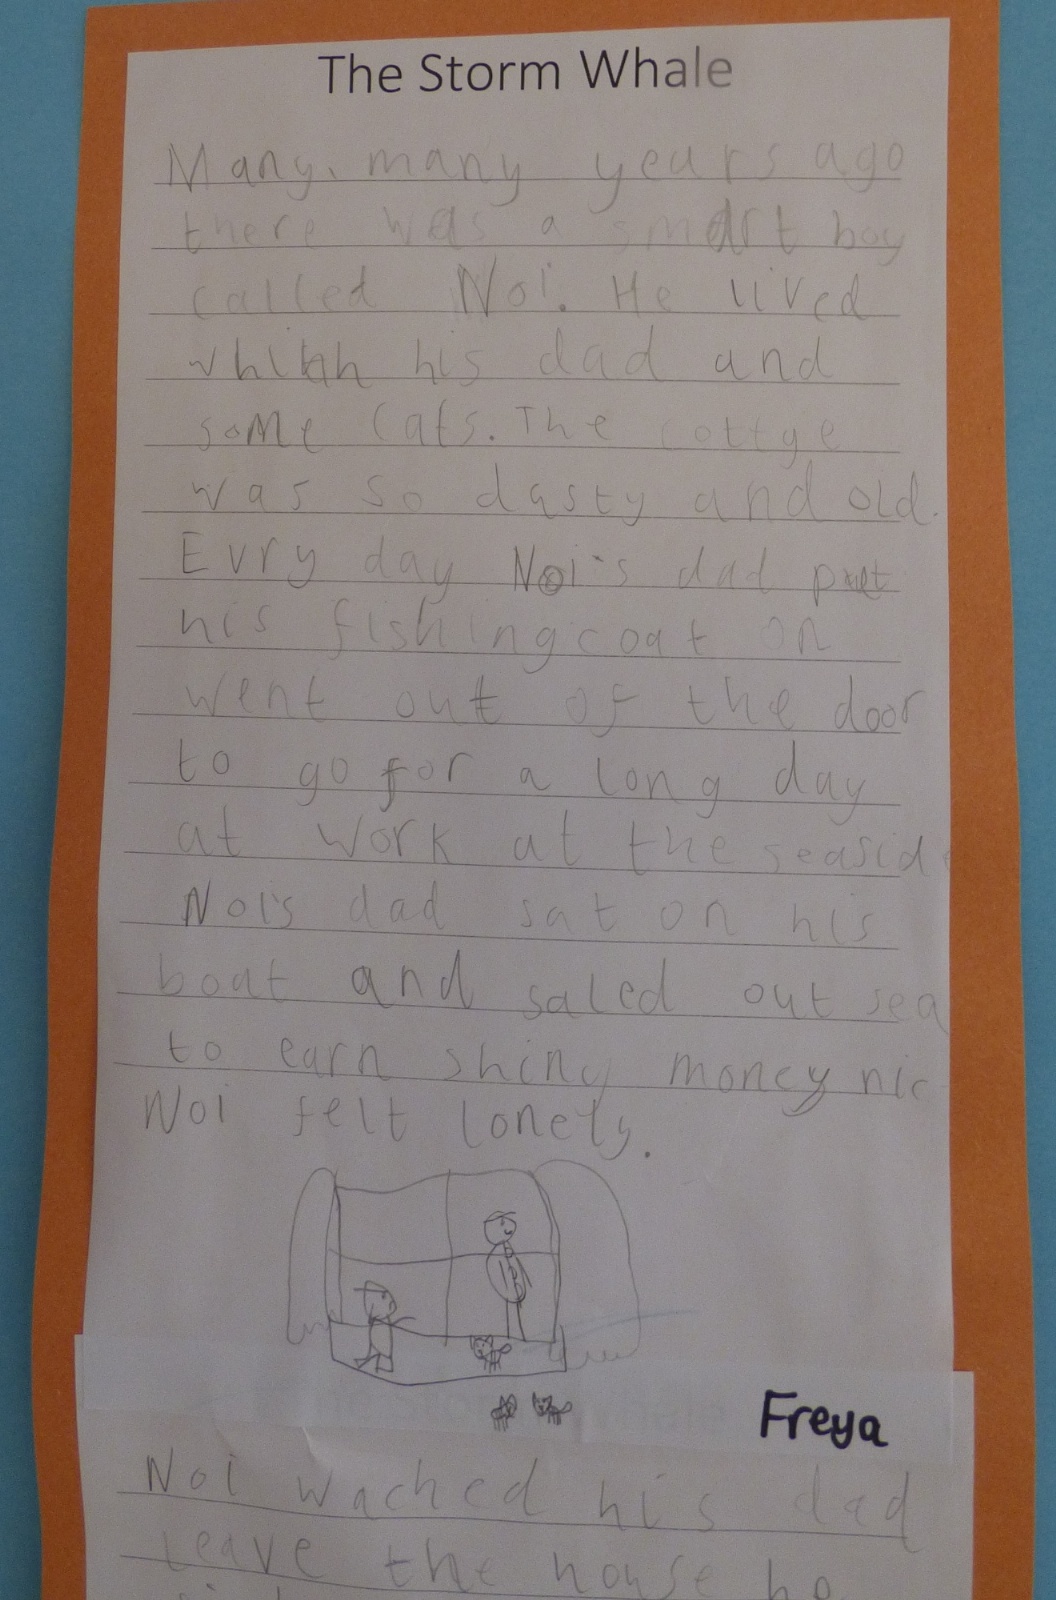 The Storm Whale
Many, many years ago
there was a smart boy
called Noi. He lived
his dad and
some cats. The cottge
was so dasty and old.
Evry day Noi's dad put
his fishing coat on
went out of the door
to go for a long day
at work at the seasid
Nois dad sat on his
boat and saled out sea
to earn shiny money nic
Noi felt lonely.
Freya
Noi wached his dad
leave the house he